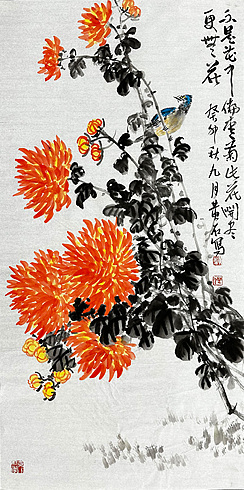 不是花中偏愛菊此花開尽
更無花 癸卯秋九月黄石寫